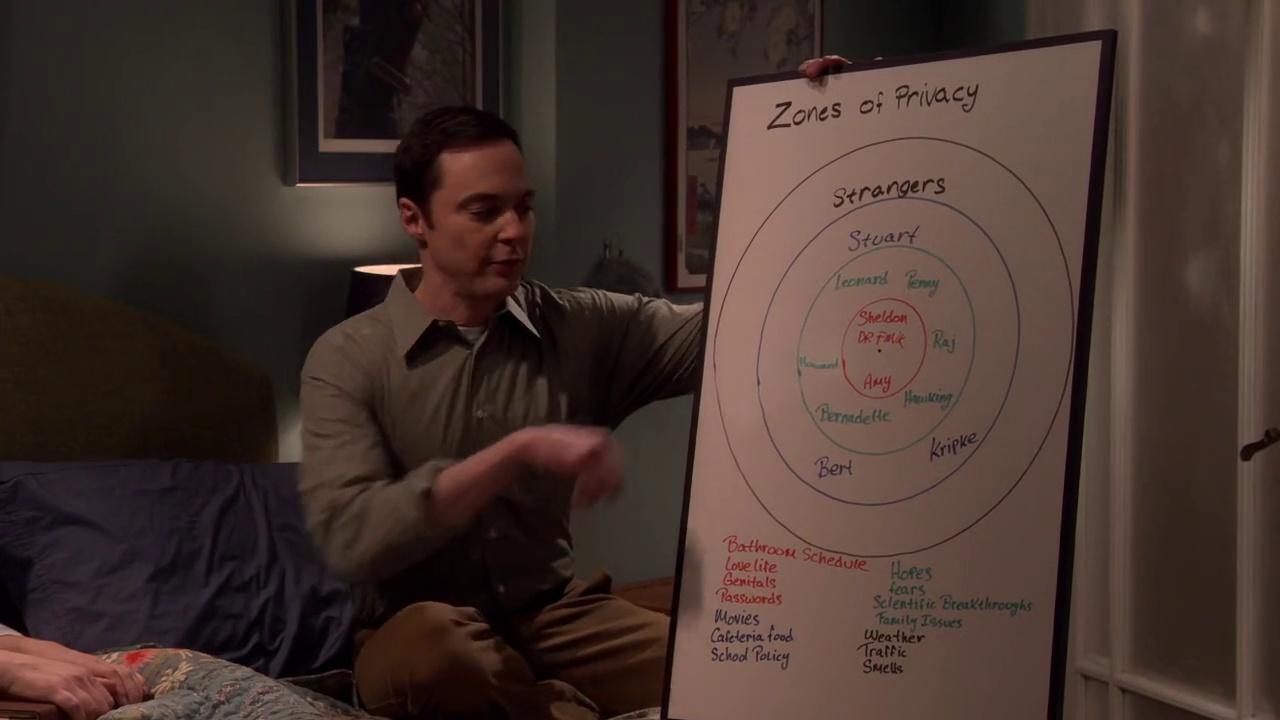 Zones of Privacy
Strangers
Stuart
Leonard Penny
Sheldon
Raj
Howard
Amy
Hawking
Bernadette
Kripke
Bert
Bathroom Schedule
Love life
Genitals
Passwords
Movies
Cafeteria food
School Policy
Hopes
fears
Scientific Breakthroughs
Family Issues
Weather
Traffic
Smells